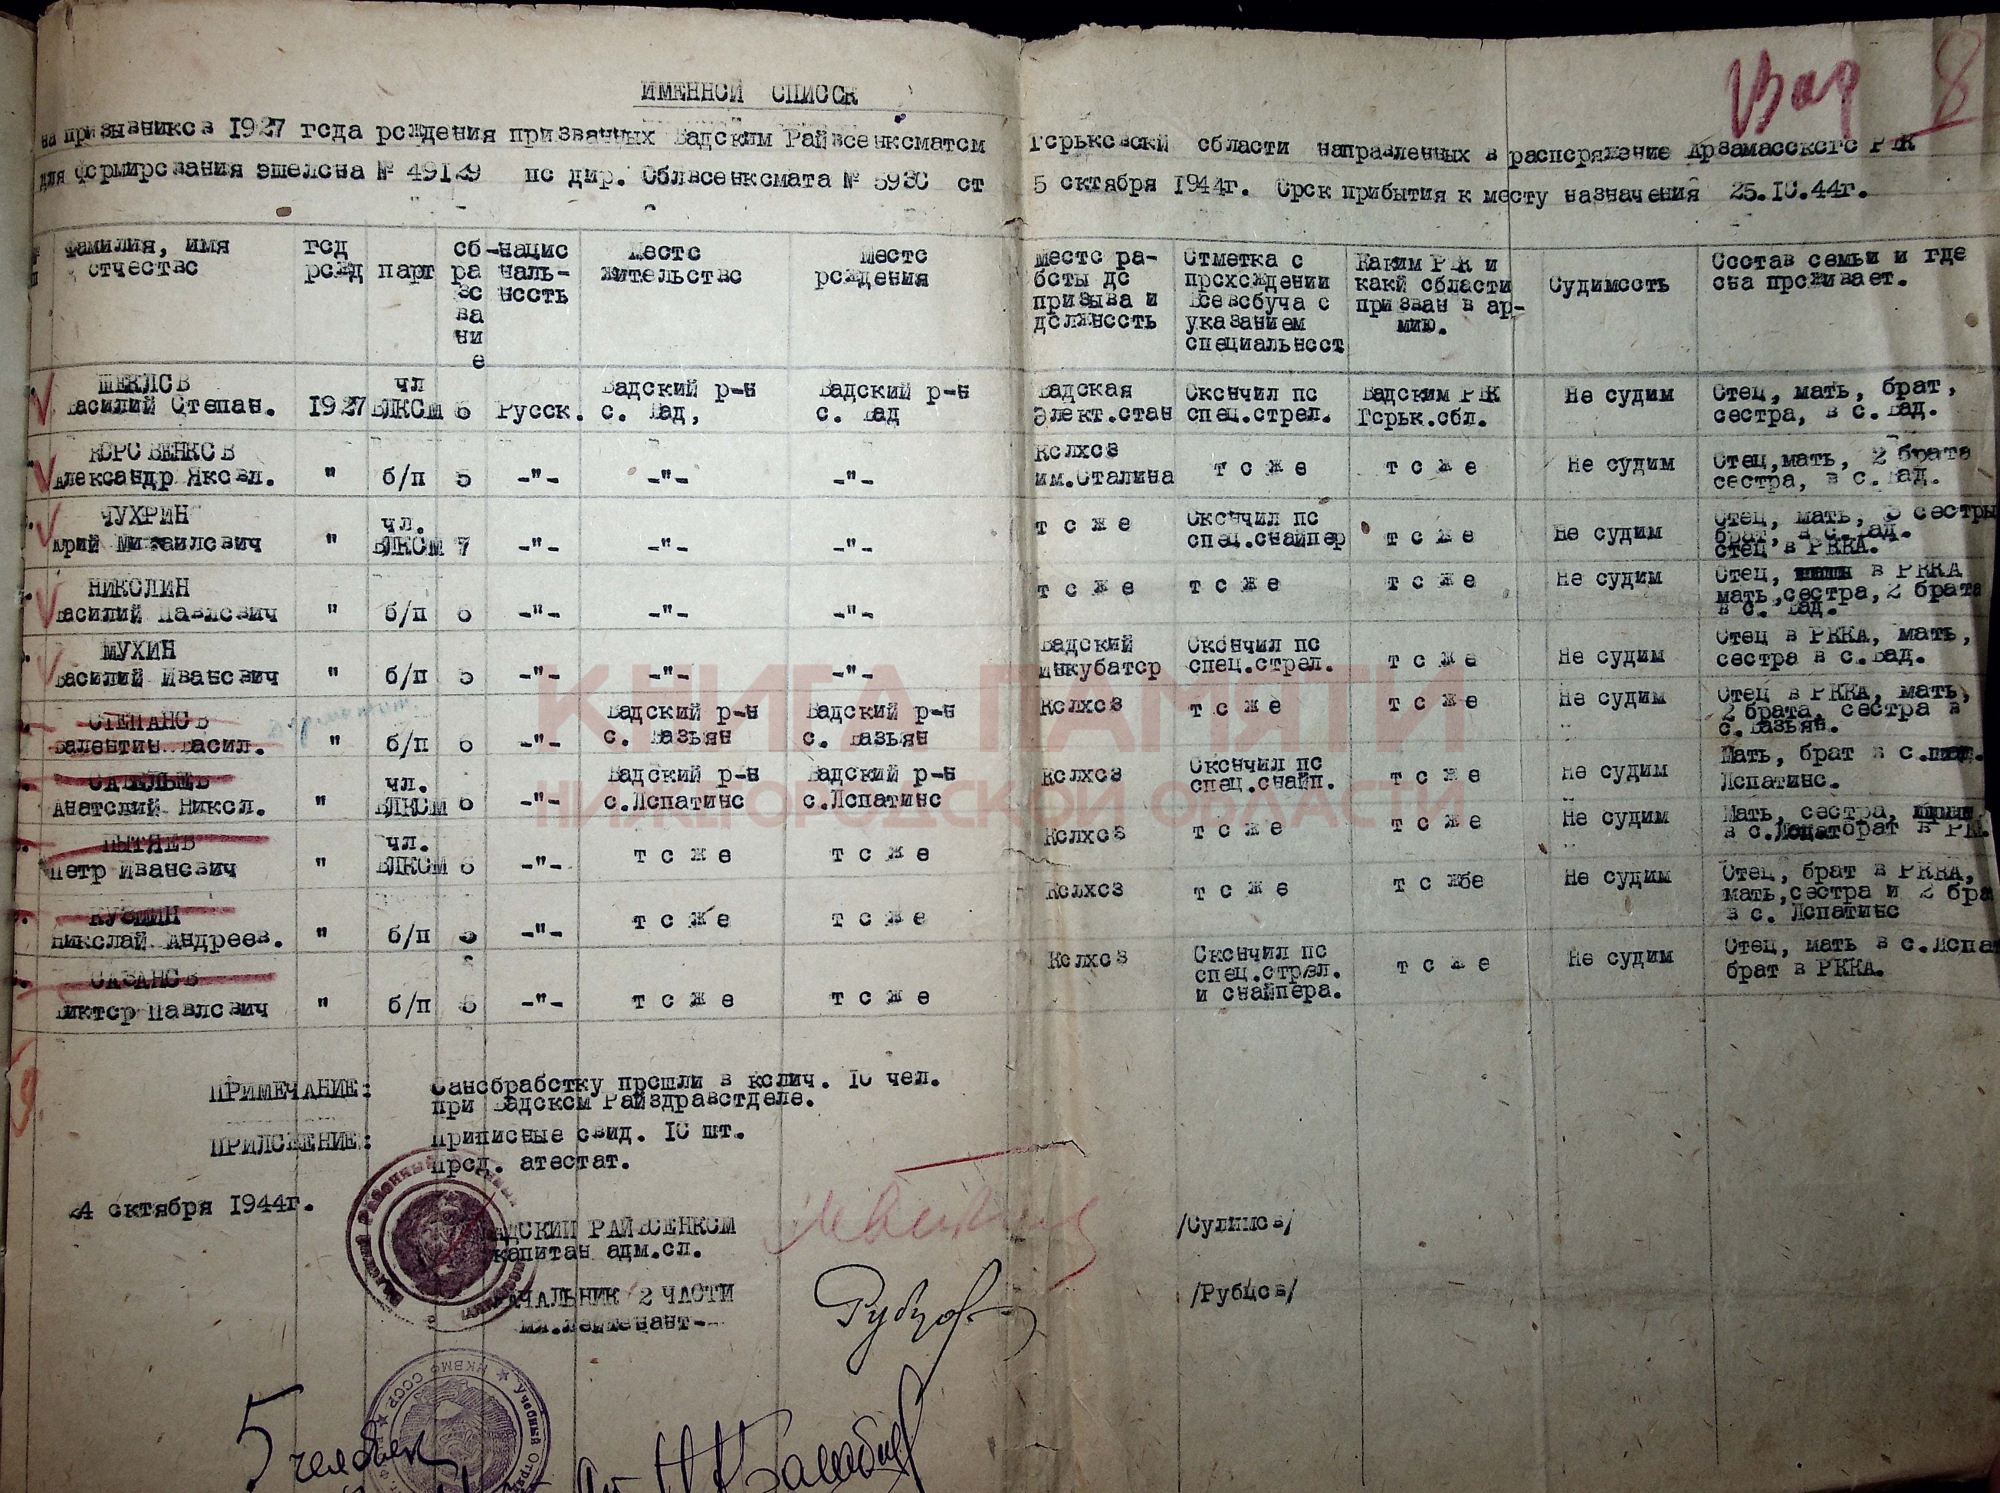 ИМЕННОЙ СПИСОК
на призывников 1927 года рождения призванных Вадским Райвоенкоматом Горьковскй области направленных в распоряжение Арзамасского РВК
для формирования эшелона № 49129 по дир. Облвоенкомата № 5930 от 5 октября 1944г. Срок прибытия к месту назначения 25.10.44г.
Вад 8
Фамилия, имя отчество | год рожд | парт | образование | национальность | Место жительство | Место рождения | Место работы до призыва и должность | Отметка о прохождении Всевобуча с указанием специальност | Каким РВК и какй области призван в армию. | Судимость | Состав семьи и где она проживает.
ШЕКЛОВ Василий Степан. | 1927 | чл ВЛКСМ | 6 | Русск. | Вадский р-н с. Вад, | Вадский р-н с. Вад | Вадская Элект.стан | Окончил по спец.стрел. | Вадским РВК Горьк.обл. | Не судим | Отец, мать, брат, сестра, в с. Вад.
КОРОВЕНКОВ Александр Яковл. | " | б/п | 5 | -"- | -"- | -"- | Колхоз им.Сталина | т о ж е | т о ж е | Не судим | Отец,мать, 2 брата сестра, в с. Вад.
ЧУХРИН Юрий Михаилович | " | чл. ВЛКСМ | 7 | -"- | -"- | -"- | т о ж е | Окончил по спец.снайпер | т о ж е | Не судим | Отец, мать, 3 сестры брат, в с. Вад. отец в РККА.
НИКОЛИН Василий Павлович | " | б/п | 6 | -"- | -"- | -"- | т о ж е | т о ж е | т о ж е | Не судим | Отец, в РККА мать,сестра,2 брата в с. Вад.
МУХИН Василий Иванович | " | б/п | 5 | -"- | -"- | -"- | Вадский инкубатор | Окончил по спец.стрел. | т о ж е | Не судим | Отец в РККА, мать, сестра в с.Вад.
СТЕПАНОВ Валентин Васил. | " | б/п | 6 | -"- | Вадский р-н с. Вазьян | Вадский р-н с. Вазьян | Колхоз | т о ж е | т о ж е | Не судим | Отец в РККА, мать, 2 брата, сестра в с.Вазьян.
Анатолий Никол. | " | чл. ВЛКСМ | 6 | -"- | Вадский р-н с.Лопатино | Вадский р-н с.Лопатино | Колхоз | Окончил по спец.снайп. | т о ж е | Не судим | Мать, брат в с. Лопатино.
ПЫТЯЕВ Петр Иванович | " | чл. ВЛКСМ | 6 | -"- | т о ж е | т о ж е | Колхоз | т о ж е | т о ж е | Не судим | Мать, сестра, в с. брат в РК.
КУЗМИН Николай Андреев. | " | б/п | 5 | -"- | т о ж е | т о ж е | Колхоз | т о ж е | т о жбе | Не судим | Отец, брат в РККА, мать,сестра и 2 бра в с. Лопатино
САЗАНОВ Виктор Павлович | " | б/п | 5 | -"- | т о ж е | т о ж е | Колхоз | Окончил по спец.стрел. и снайпера. | т о ж е | Не судим | Отец, мать в с.Лопат брат в РККА.
ПРИМЕЧАНИЕ: Санобработку прошли в колич. 10 чел.
при Вадском Райздравотделе.
ПРИЛОЖЕНИЕ: Приписные свид. 10 шт.
Прод. атестат.
24 октября 1944г.
ВАДСКИЙ РАЙВОЕНКОМ
капитан адм.сл. /Сулимов/
НАЧАЛЬНИК 2 ЧАСТИ
мл.лейтенант- Рубцов /Рубцов/
5 человек
Учебный Отряд
НКВМФ СССР
КНИГА ПАМЯТИ
НИЖЕГОРОДСКОЙ ОБЛАСТИ